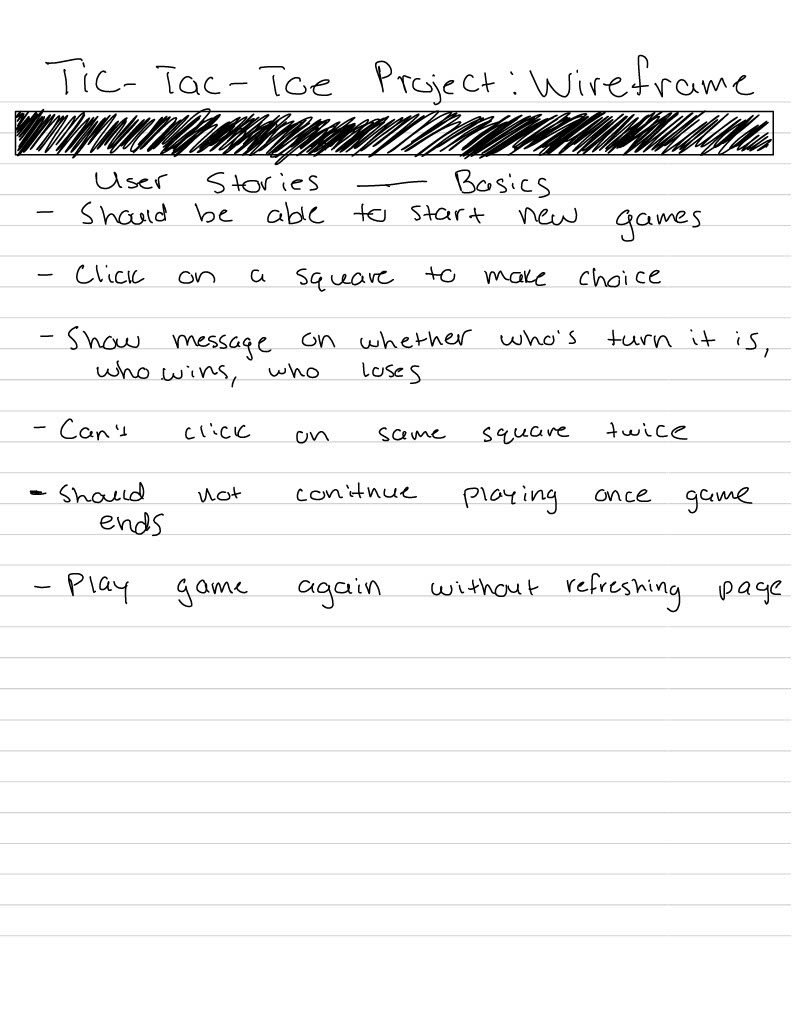 Tic-Tac-Toe Project: Wireframe
User Stories — Basics
- Should be able to start new games
- Click on a square to make choice
- Show message on whether who's turn it is,
who wins, who loses
- Can't click on same square twice
- Should not conitnue playing once game
ends
- Play game again without refreshing page